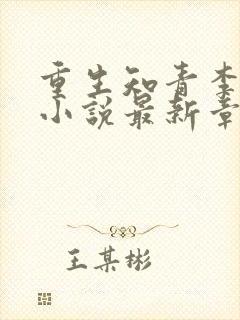 重生知青李
小说最新章
王某彬